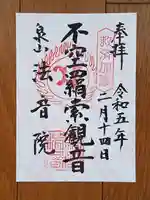 奉拝
令和五年
二月十四日
不空羂索観音
泉山法音院